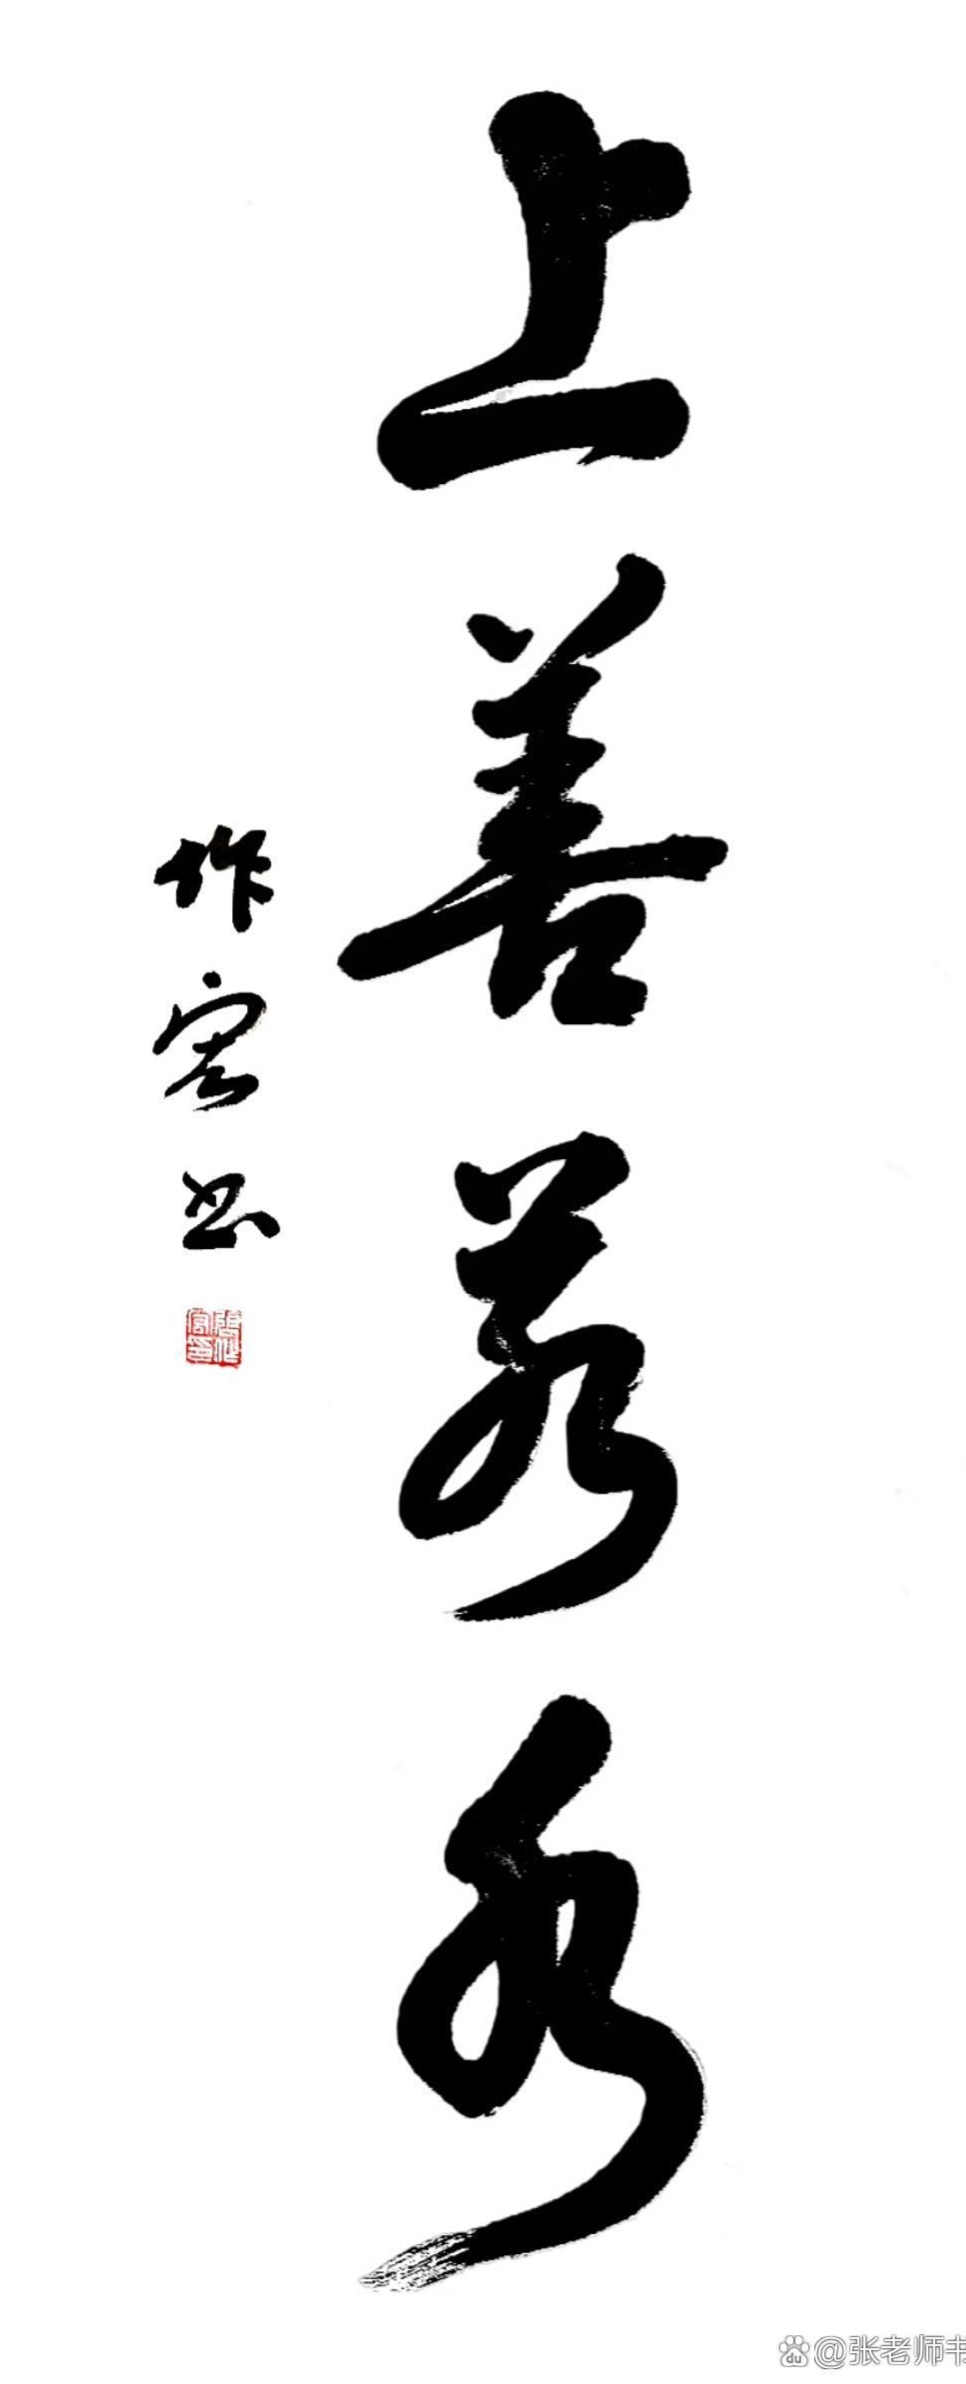 上善若水
作宏书
@张老师书